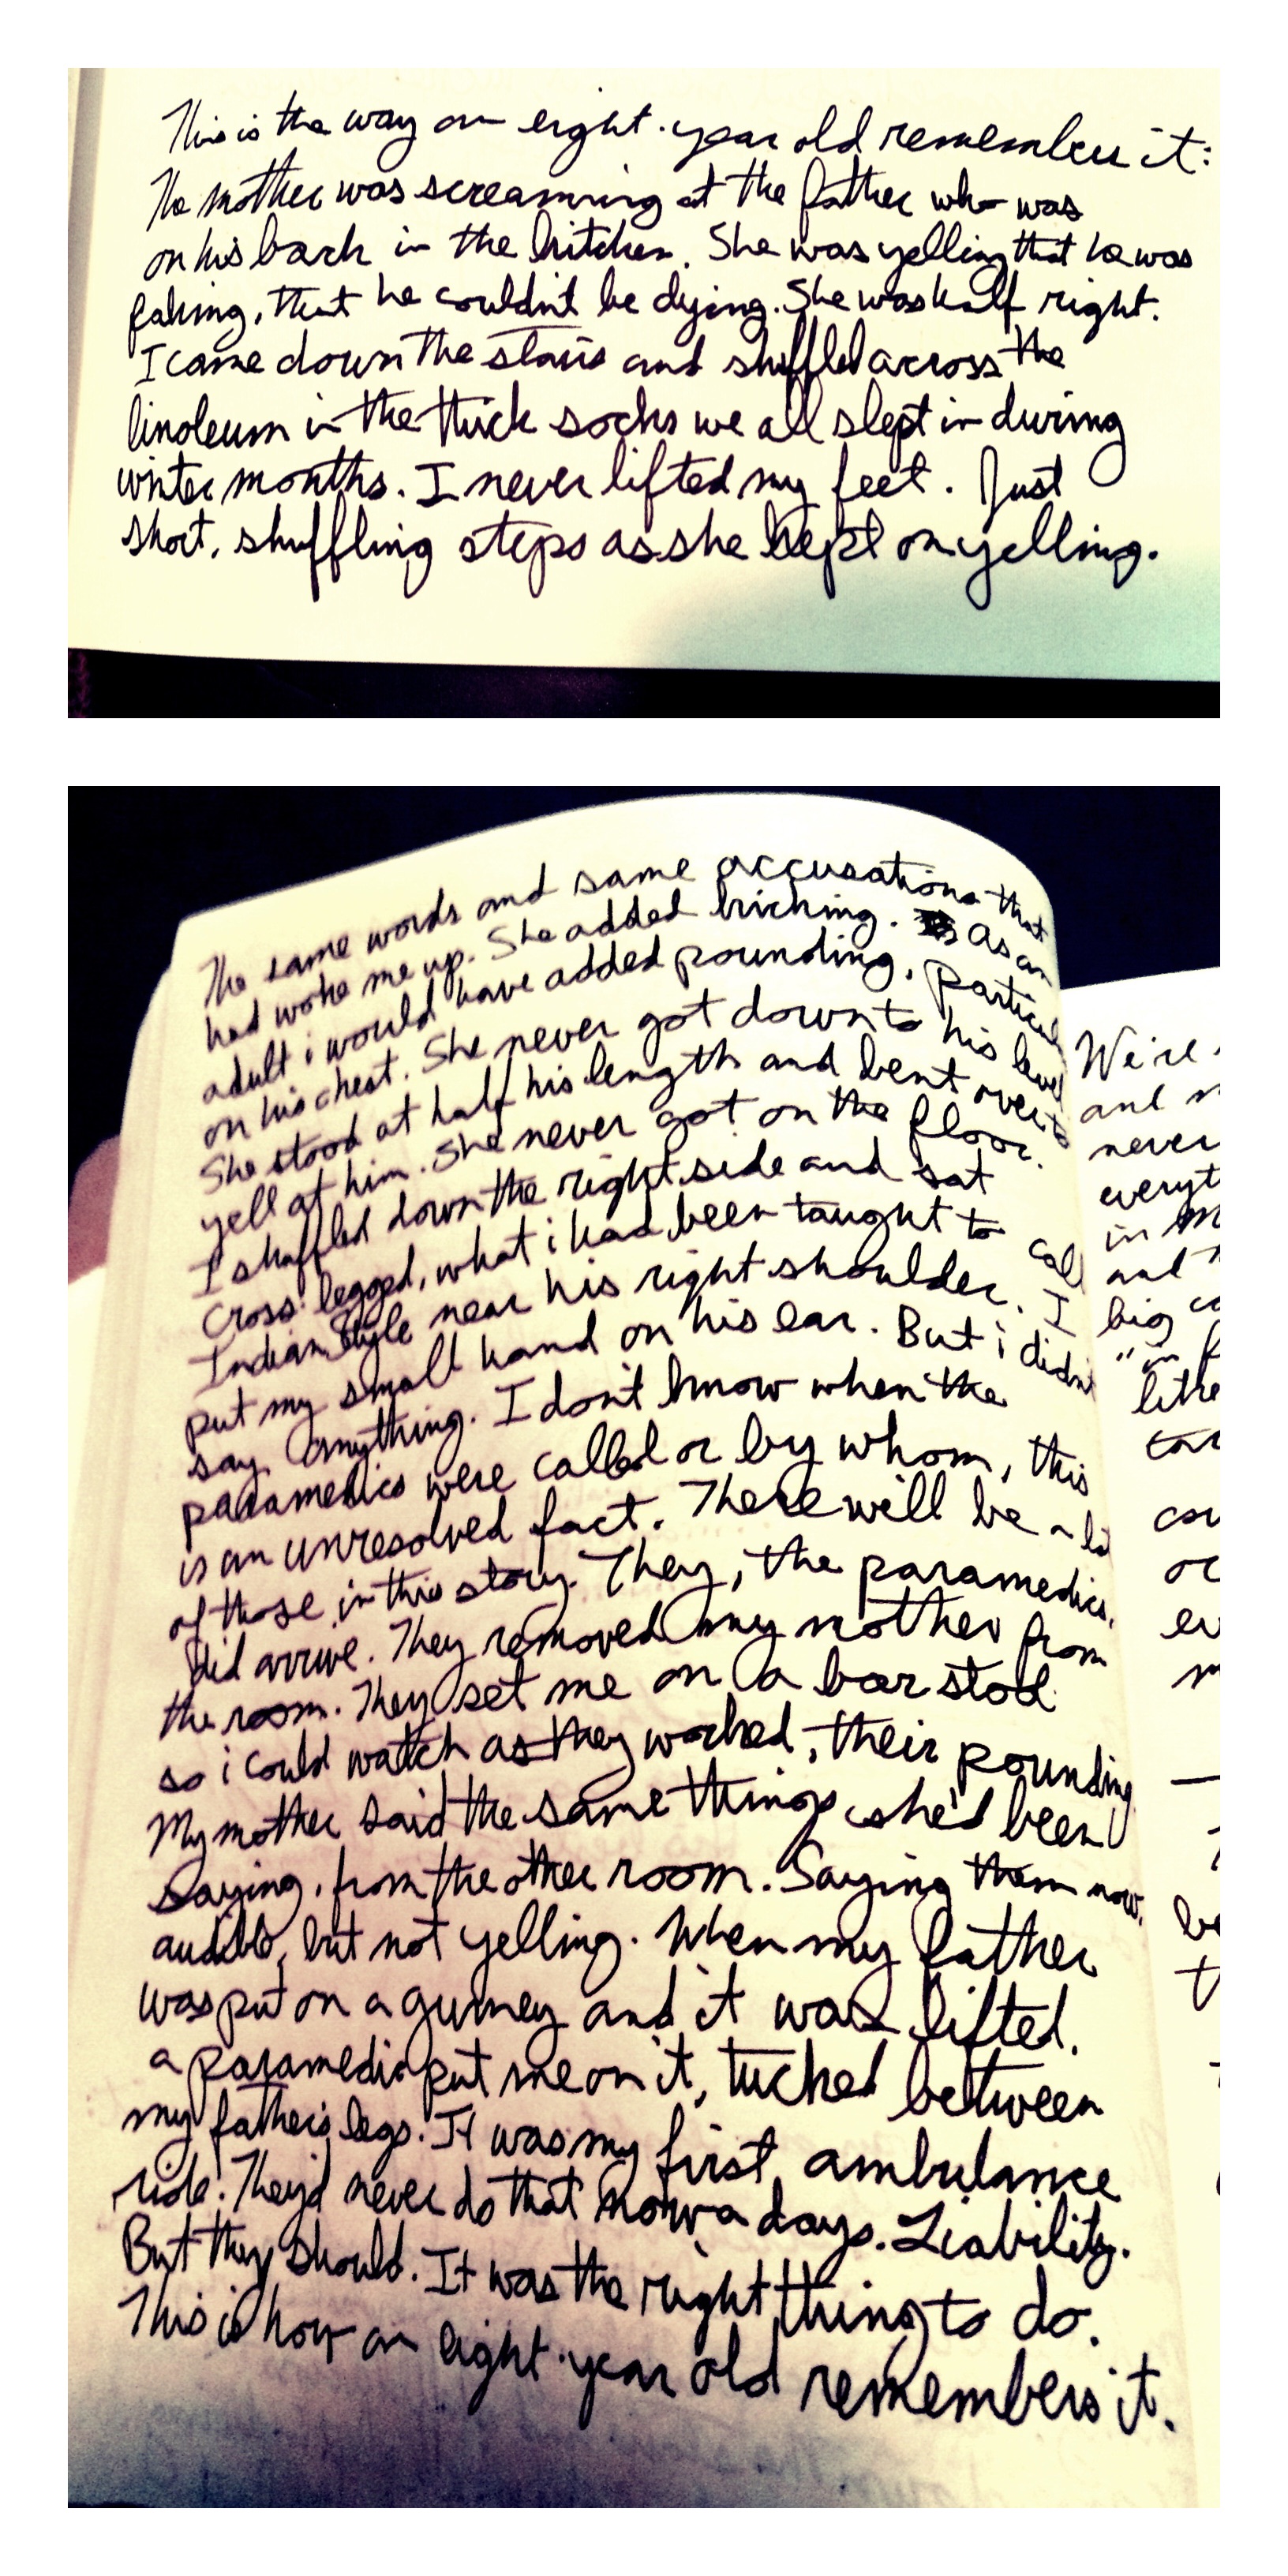 This is the way an eight-year old remembers it:
The mother was screaming at the father who was
on his back in the kitchen. She was yelling that he was
faking, that he couldn't be dying. She was half right.
I came down the stairs and shuffled across the
linoleum in the thick socks we all slept in during
winter months. I never lifted my feet. Just
short, shuffling steps as she kept on yelling.
The same words and same accusations that
had woke me up. She added kicking. As an
adult i would have added pounding, particularly
on his chest. She never got down to his level
She stood at half his length and bent over to
yell at him. She never got on the floor.
I shuffled down the right side and sat
cross-legged, what i had been taught to call
Indian style near his right shoulder. I
put my small hand on his ear. But i didn't
say anything. I don't know when the
paramedics were called or by whom, this
is an unresolved fact. There will be a lot
of those in this story. They, the paramedics,
did arrive. They removed my mother from
the room. They set me on a bar stool
so i could watch as they worked, their pounding
My mother said the same things she'd been
saying, from the other room. Saying them now,
audible, but not yelling. When my father
was put on a gurney and it was lifted,
a paramedic put me on it, tucked between
my father's legs. It was my first ambulance
ride. They'd never do that nowadays. Liability.
But they should. It was the right thing to do.
This is how an eight-year old remembers it.
We're
and
never
everyt
in
and
big
"in